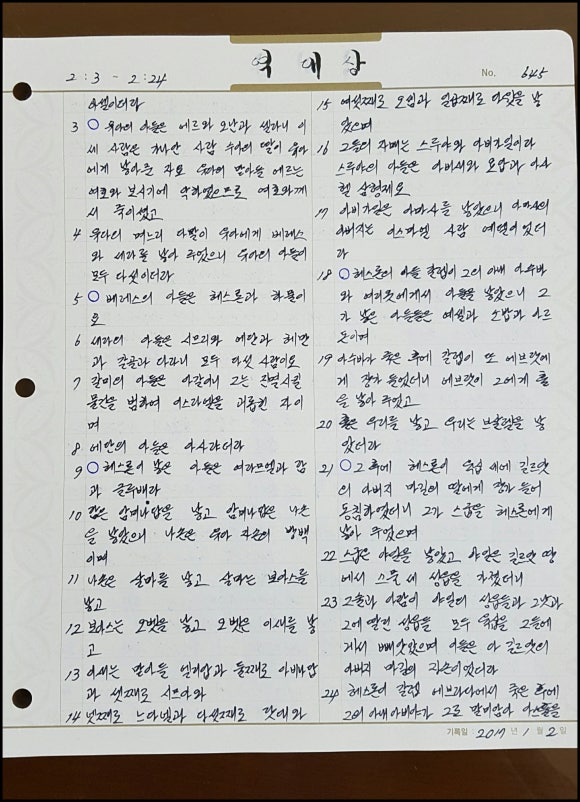 역대상
2:3 - 2:24
No. 645
아셀이더라
3 ○ 유다의 아들은 에르와 오난과 셀라니 이
세 사람은 가나안 사람 수아의 딸이 유다
에게 낳아준 자요 유다의 맏아들 에르는
여호와 보시기에 악하였으므로 여호와께
서 죽이셨고
4 유다의 며느리 다말이 유다에게 베레스
와 세라를 낳아 주었으니 유다의 아들이
모두 다섯이더라
5 ○ 베레스의 아들은 헤스론과 하물이
요
6 세라의 아들은 시므리와 에단과 헤만
과 갈골과 다라니 모두 다섯 사람이요
7 갈미의 아들은 아갈이니 그는 진멸시킬
물건을 범하여 이스라엘을 괴롭힌 자이
며
8 에단의 아들은 아사랴더라
9 ○ 헤스론이 낳은 아들은 여라므엘과 람
과 글루배라
10 람은 암미나답을 낳고 암미나답은 나손
을 낳았으니 나손은 유다 자손의 방백
이며
11 나손은 살마를 낳고 살마는 보아스를
낳고
12 보아스는 오벳을 낳고 오벳은 이새를 낳
고
13 이새는 맏아들 엘리압과 둘째로 아비나답
과 셋째로 시므아와
14 넷째로 느다넬과 다섯째로 랏대와
15 여섯째로 오셈과 일곱째로 다윗을 낳
았으며
16 그들의 자매는 스루야와 아비가일이라
스루야의 아들은 아비새와 요압과 아사
헬 삼형제요
17 아비가일은 아마사를 낳았으니 아마사의
아버지는 이스마엘 사람 예델이었더
라
18 ○ 헤스론의 아들 갈렙이 그의 아내 아수바
와 여리옷에게서 아들을 낳았으니 그
가 낳은 아들들은 예셀과 소밥과 아르
돈이며
19 아수바가 죽은 후에 갈렙이 또 에브랏에
게 장가 들었더니 에브랏이 그에게 훌
을 낳아 주었고
20 훌은 우리를 낳고 우리는 브살렐을 낳
았더라
21 ○ 그 후에 헤스론이 육십 세에 길르앗
의 아버지 마길의 딸에게 장가 들어
동침하였더니 그가 스굽을 헤스론에게
낳아 주었으며
22 스굽은 야일을 낳았고 야일은 길르앗 땅
에서 스물 세 성읍을 가졌더니
23 그술과 아람이 야일의 성읍들과 그낫과
그에 딸린 성읍을 모두 육십을 그들에
게서 빼앗았으며 이들은 다 길르앗의
아버지 마길의 자손이었더라
24 헤스론이 갈렙 에브라다에서 죽은 후에
그의 아내 아비야가 그로 말미암아 아스훌을
기록일: 2017년 1월 2일